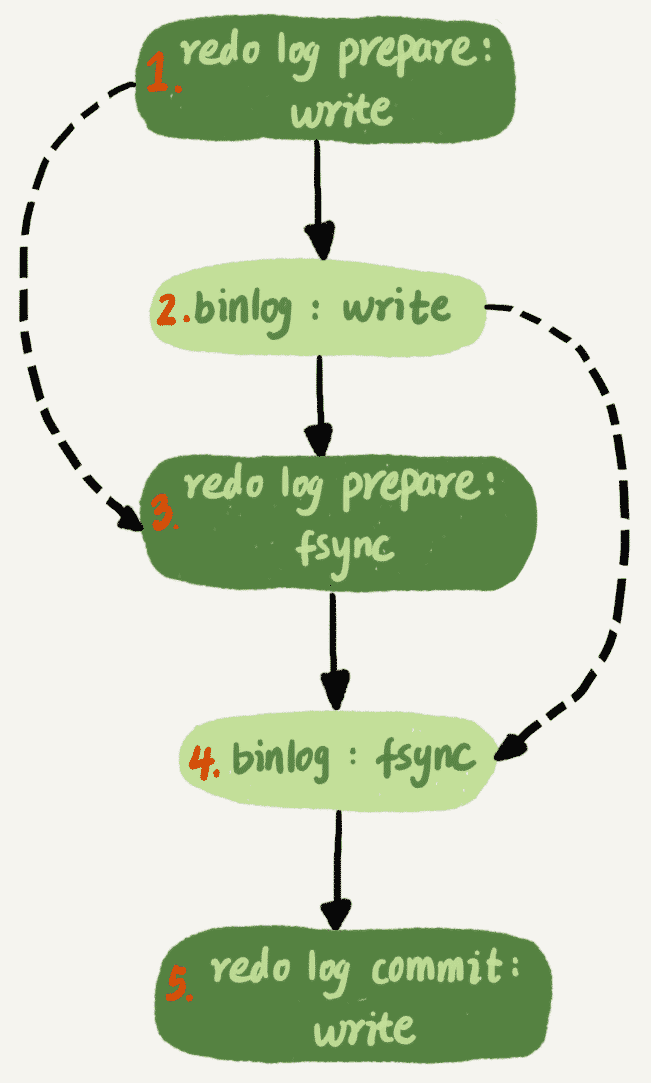 1. redo log prepare:
write
2. binlog : write
3. redo log prepare:
fsync
4. binlog : fsync
5. redo log commit:
write